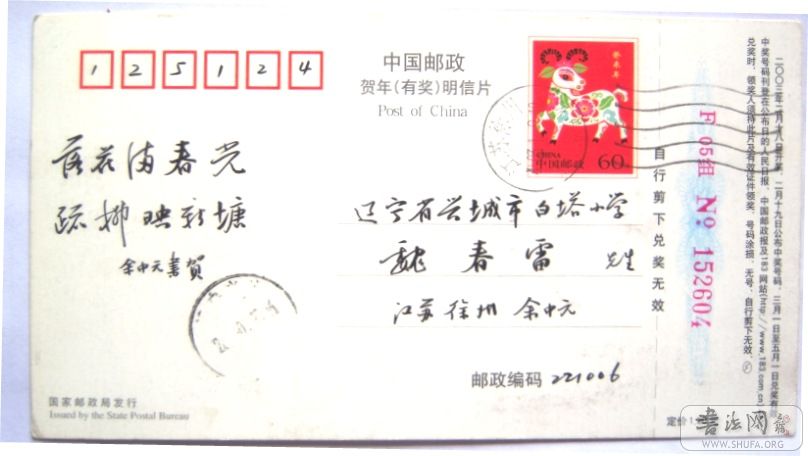 125124
中国邮政
贺年(有奖)明信片
Post of China
癸未年
CHINA
中国邮政 60
落花满春光
疏柳映新塘
余中元書賀
辽宁省兴城市白塔小学
魏春雷 先生
江苏徐州 余中元
邮政编码 221006
国家邮政局发行
Issued by the State Postal Bureau
自行剪下兑奖无效
F 05组 No 152604
二〇〇三年二月十八日开奖,二月十九日公布中奖号码,三月一日至五月一日兑奖有效
中奖号码刊登在公布日的人民日报、中国邮政报及183网站(http://www.183.com.cn)
兑奖时,领奖人须持此片及有效证件领奖,号码涂损、无号、自行剪下无效。
定价1.
書法网
WWW.SHUFA.ORG